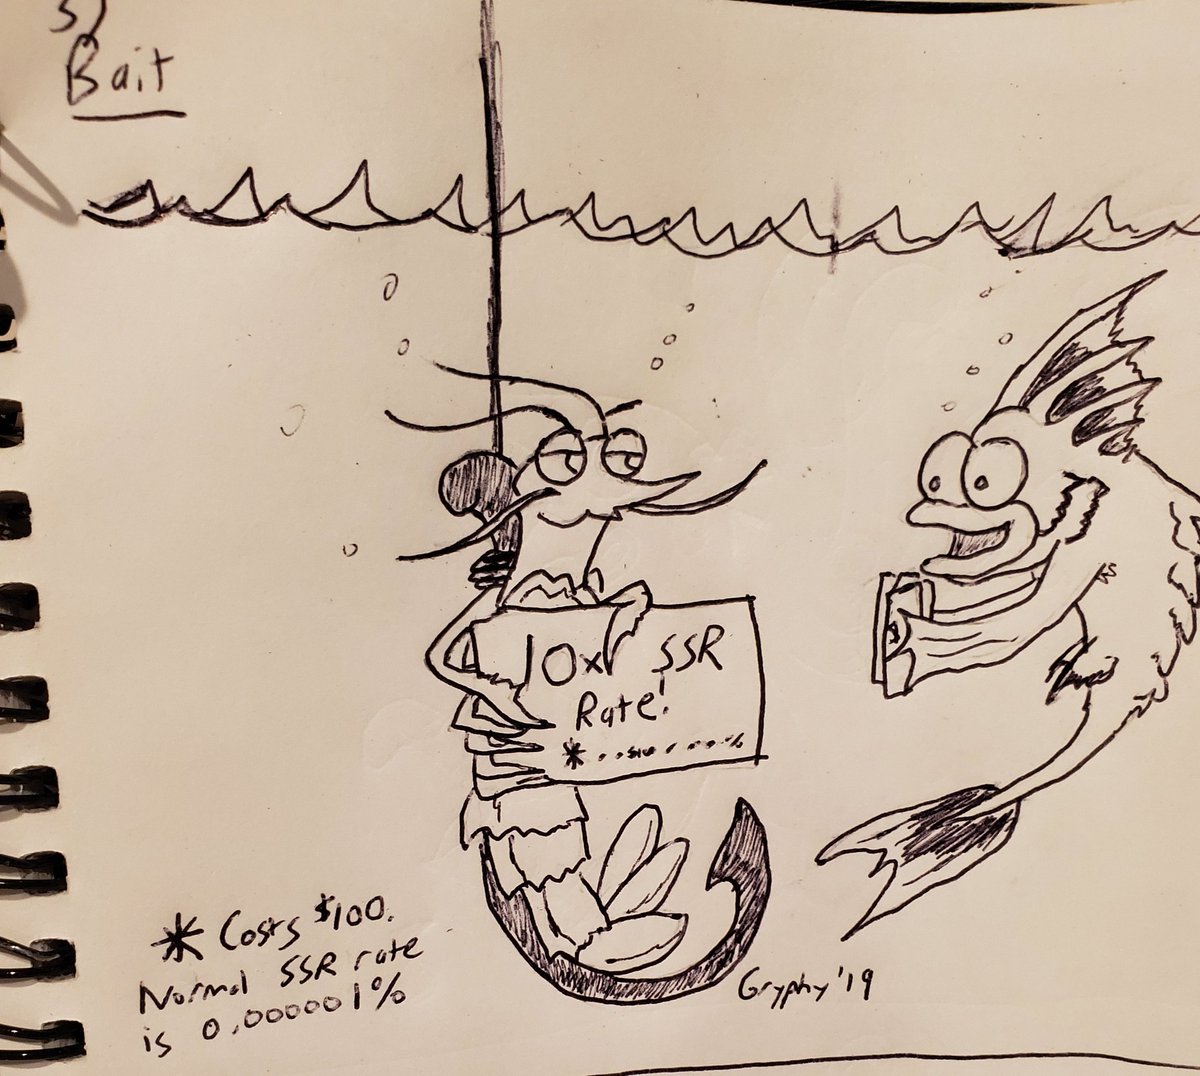 5)
Bait
10x SSR
Rate!
*
* Costs $100.
Normal SSR rate
is 0.000001%
Gryphy '19